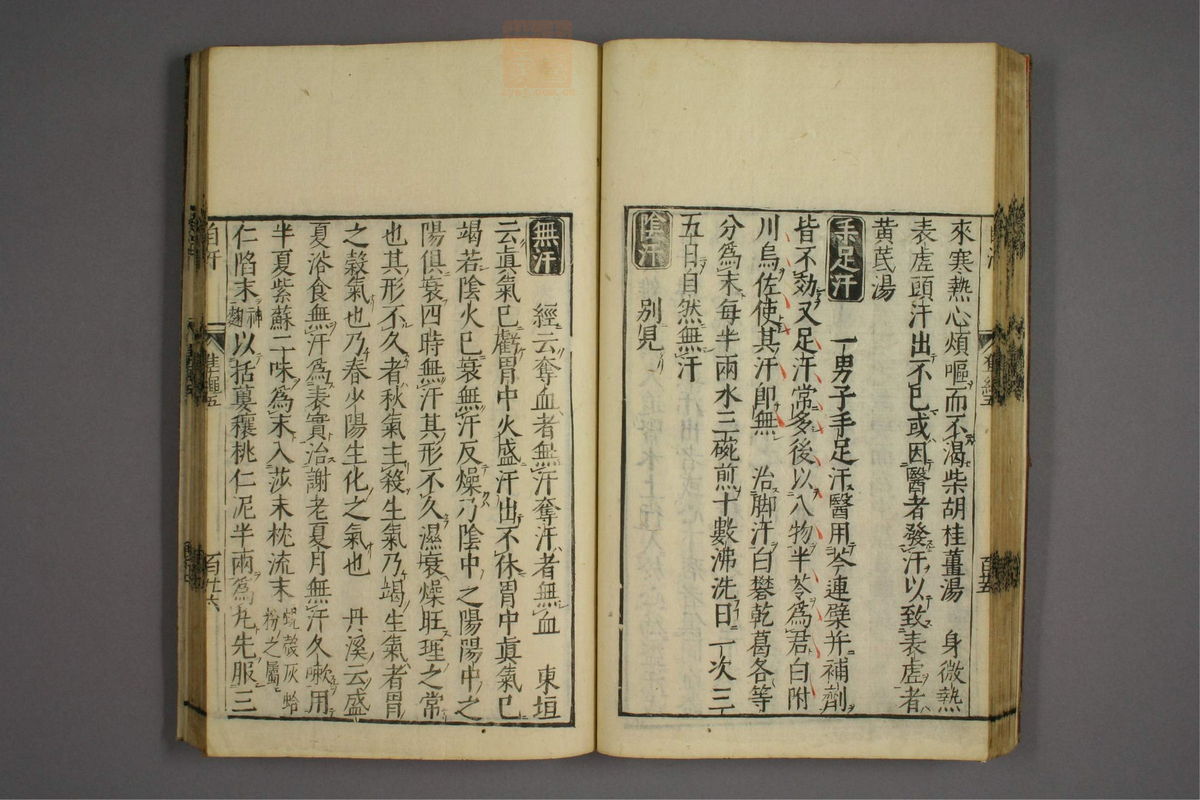 來寒熱心煩嘔而不渴柴胡桂薑湯　身微熱
表虛頭汗出不已或因醫者發汗以致表虛者
黃芪湯
手足汗　一男子手足汗醫用芩連檗并補劑
皆不効又足汗常多後以八物半苓爲君白附
川烏佐使其汗卽無　治脚汗白礬乾葛各等
分爲末每半兩水三碗煎十數沸洗日一次三
五日自然無汗
陰汗　別見
無汗　經云奪血者無汗奪汗者無血　東垣
云眞氣已虧胃中火盛汗出不休胃中眞氣已
竭若陰火已衰無汗反燥乃陰中之陽陽中之
陽俱衰四時無汗其形不久濕衰燥旺理之常
也其形不久者秋氣主殺生氣乃竭生氣者胃
之穀氣也乃春少陽生化之氣也　丹溪云盛
夏浴食無汗爲表實治謝老夏月無汗久嗽用
半夏紫蘇二味爲末入莎末蜆殼灰蛤粉之屬桃仁
仁陷末神麴以括蔞穰桃仁泥半兩爲丸先服三
自汗
百廿六
百廿五